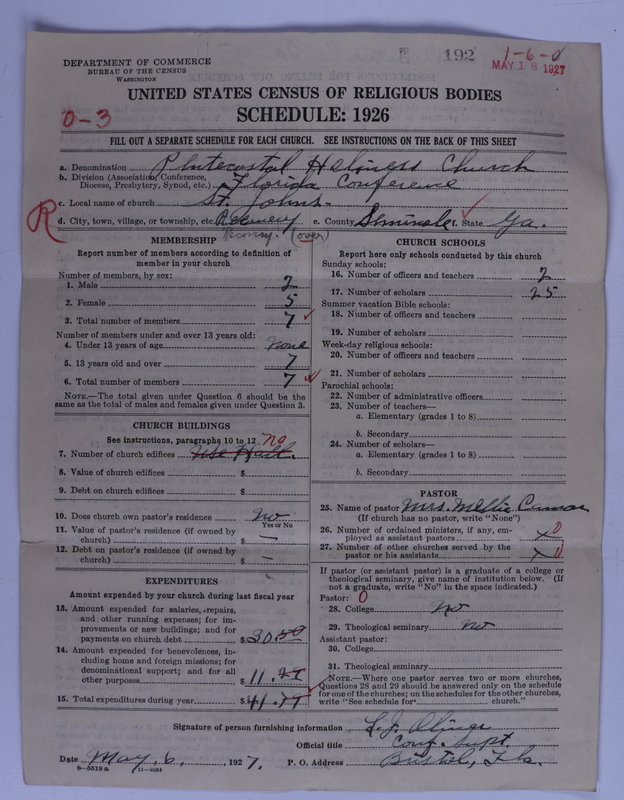 192
1-6-0
MAY 18 1927
DEPARTMENT OF COMMERCE
BUREAU OF THE CENSUS
WASHINGTON
UNITED STATES CENSUS OF RELIGIOUS BODIES
SCHEDULE: 1926
0-3
FILL OUT A SEPARATE SCHEDULE FOR EACH CHURCH. SEE INSTRUCTIONS ON THE BACK OF THIS SHEET
a. Denomination Pentecostal Holiness Church
b. Division (Association, Conference, Diocese, Presbytery, Synod, etc.) Florida Conference
c. Local name of church St. Johns
R
d. City, town, village, or township, etc. e. County Seminole f. State Ga.
(over)
MEMBERSHIP
Report number of members according to definition of member in your church
Number of members, by sex:
1. Male 2
2. Female 5
3. Total number of members 7
Number of members under and over 13 years old:
4. Under 13 years of age none
5. 13 years old and over 7
6. Total number of members 7
NOTE.—The total given under Question 6 should be the same as the total of males and females given under Question 3.
CHURCH BUILDINGS
See instructions, paragraphs 10 to 12 no
7. Number of church edifices Use Hall.
8. Value of church edifices $
9. Debt on church edifices $
10. Does church own pastor's residence No
Yes or No
11. Value of pastor's residence (if owned by church) $ —
12. Debt on pastor's residence (if owned by church) $ —
EXPENDITURES
Amount expended by your church during last fiscal year
13. Amount expended for salaries, repairs, and other running expenses; for improvements or new buildings; and for payments on church debt $30.50
14. Amount expended for benevolences, including home and foreign missions; for denominational support; and for all other purposes $11.29
15. Total expenditures during year $41.79
CHURCH SCHOOLS
Report here only schools conducted by this church
Sunday schools:
16. Number of officers and teachers 2
17. Number of scholars 25
Summer vacation Bible schools:
18. Number of officers and teachers
19. Number of scholars
Week-day religious schools:
20. Number of officers and teachers
21. Number of scholars
Parochial schools:
22. Number of administrative officers
23. Number of teachers—
a. Elementary (grades 1 to 8)
b. Secondary
24. Number of scholars—
a. Elementary (grades 1 to 8)
b. Secondary
PASTOR
25. Name of pastor Mrs. Mellie
(If church has no pastor, write "None")
26. Number of ordained ministers, if any, employed as assistant pastors x 0
27. Number of other churches served by the pastor or his assistants x 0
If pastor (or assistant pastor) is a graduate of a college or theological seminary, give name of institution below. (If not a graduate, write "No" in the space indicated.)
Pastor: 0
28. College No
29. Theological seminary No
Assistant pastor:
30. College
31. Theological seminary
NOTE.—Where one pastor serves two or more churches, Questions 28 and 29 should be answered only on the schedule for one of the churches; on the schedules for the other churches, write "See schedule for church."
Signature of person furnishing information
Official title Conf. Supt.
Date May 6, 1927. P. O. Address Bristol, Fla.
8—5518 a 11—9064